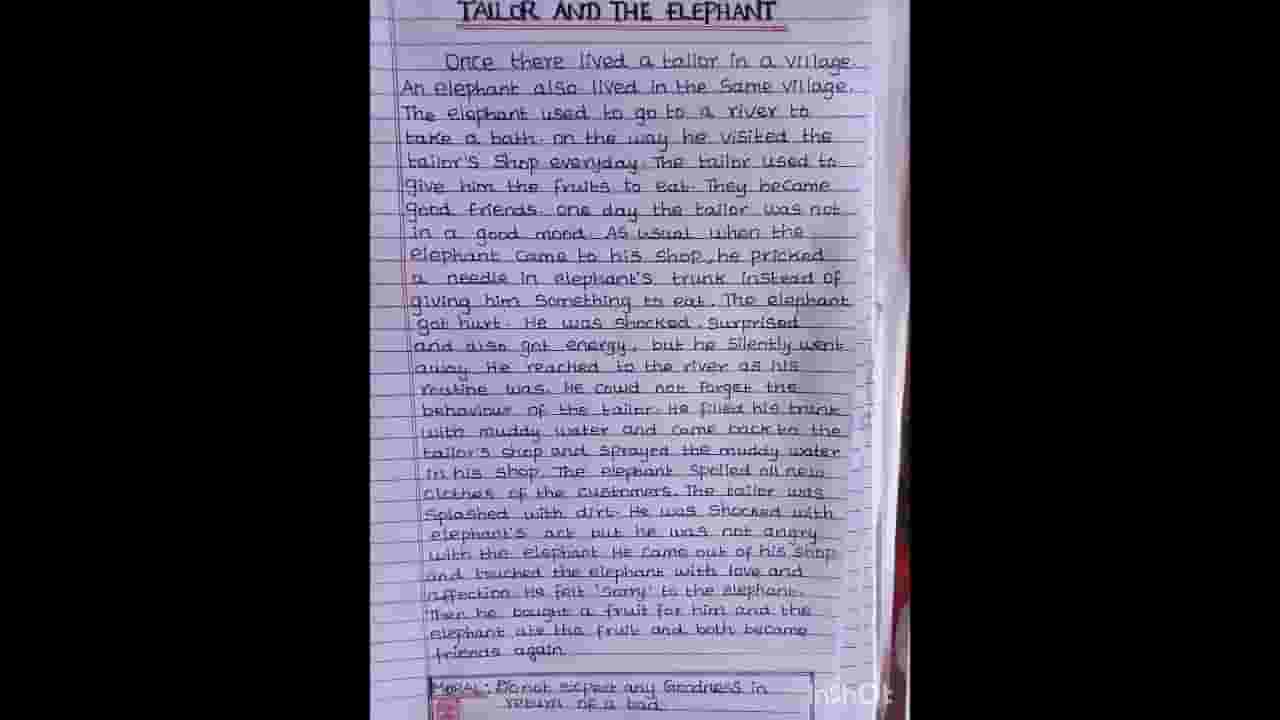 TAILOR AND THE ELEPHANT
Once there lived a tailor in a village.
An elephant also lived in the Same village.
The elephant used to go to a river to
take a bath. on the way he visited the
tailor's Shop everyday. The tailor used to
give him the fruits to eat. They became
good friends. One day the tailor was not
in a good mood. As usual when the
elephant came to his shop, he pricked
a needle in elephant's trunk instead of
giving him Something to eat. The elephant
got hurt. He was shocked. Surprised
and also got energy, but he Silently went
away. He reached to the river as his
routine was. He could not forget the
behaviour of the tailor. He filled his trunk
with muddy water and came back to the
tailor's shop and sprayed the muddy water
in his shop. The elephant Spoiled all new
clothes of the customers. The tailor was
Splashed with dirt. He was Shocked with
elephant's act but he was not angry
with the elephant. He came out of his shop
and touched the elephant with love and
affection. He felt 'Sorry' to the elephant.
Then he bought a fruit for him and the
elephant ate the fruit and both became
friends again.
Moral: Do not expect any Goodness in
return of a bad.
InShOt